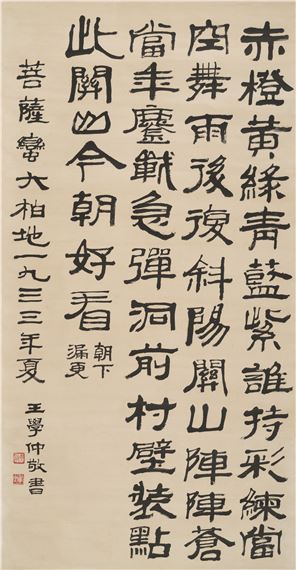 赤橙黃綠青藍紫誰持彩練當
空舞雨後復斜陽關山陣陣蒼
當年鏖戰急彈洞前村壁裝點
此關山今朝好看
朝下
漏更
菩薩蠻大柏地一九三三年夏
王學仲敬書